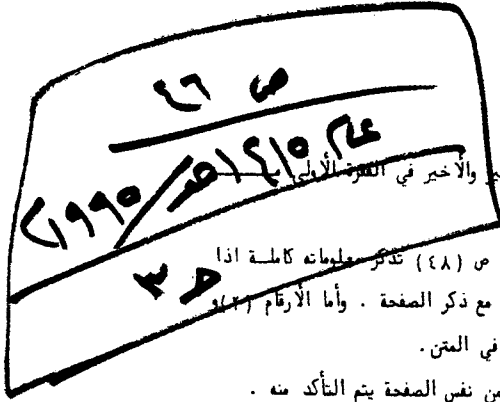 ص ٤٦
عام ١٤١٥هـ/١٩٩٥م
والأخير في الفقرة الأولى
ص (٤٨) تذكر معلوماته كاملة اذا
٣
مع ذكر الصفحة . وأما الأرقام (٢) و
في المتن .
من نفس الصفحة يتم التأكد منه .